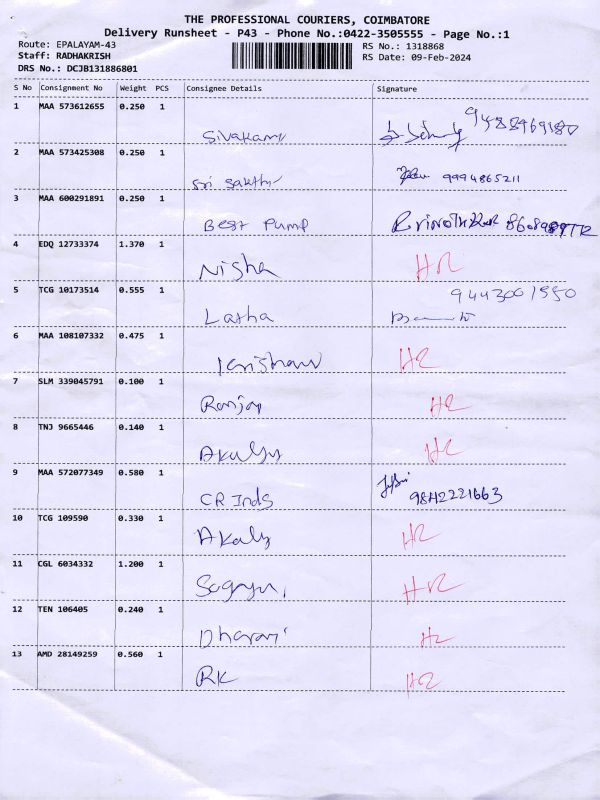 THE PROFESSIONAL COURIERS, COIMBATORE
Delivery Runsheet - P43 - Phone No.:0422-3505555 - Page No.:1
Route: EPALAYAM-43 RS No.: 1318868
Staff: RADHAKRISH RS Date: 09-Feb-2024
DRS No.: DCJB131886801
S No Consignment No Weight PCS Consignee Details Signature
1 MAA 573612655 0.250 1 Sivakami 9488969180
2 MAA 573425308 0.250 1 Sri Sakthi 9994865211
3 MAA 600291891 0.250 1 Best Pump
4 EDQ 12733374 1.370 1 Nisha HR
5 TCG 10173514 0.555 1 Latha 9443001550
6 MAA 108107332 0.475 1 HR
7 SLM 339045791 0.100 1 Ranjay HR
8 TNJ 9665446 0.140 1 Akalya HR
9 MAA 572077349 0.580 1 CR Inds 9842221663
10 TCG 109590 0.330 1 Akaly HR
11 CGL 6034332 1.200 1 HR
12 TEN 106405 0.240 1 Dharani HR
13 AMD 28149259 0.560 1 RK HR